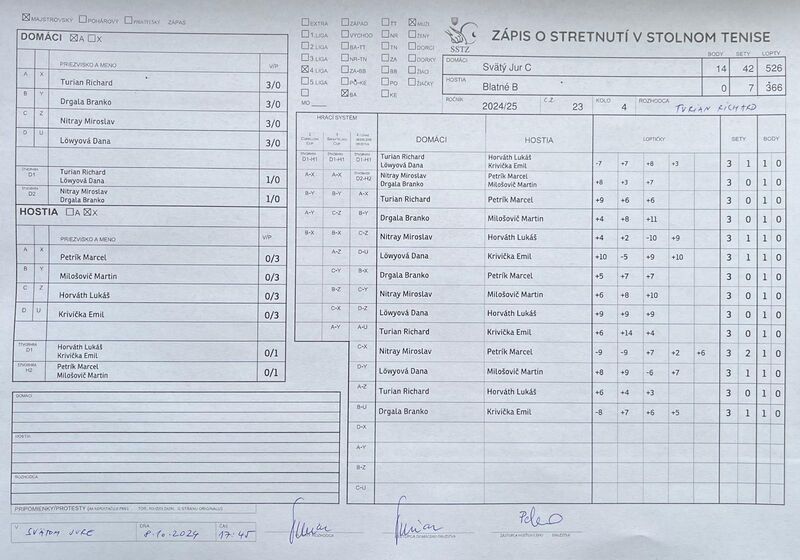 MAJSTROVSKÝ POHÁROVÝ PRIATEĽSKÝ ZÁPAS
DOMÁCI A X
PRIEZVISKO A MENO V/P
A X Turian Richard 3/0
B Y Drgala Branko 3/0
C Z Nitray Miroslav 3/0
D U Löwyová Dana 3/0
ŠTVORHRA D1 Turian Richard
Löwyová Dana 1/0
ŠTVORHRA D2 Nitray Miroslav
Drgala Branko 1/0
HOSTIA A X
PRIEZVISKO A MENO V/P
A X Petrík Marcel 0/3
B Y Milošovič Martin 0/3
C Z Horváth Lukáš 0/3
D U Krivička Emil 0/3
ŠTVORHRA D1 Horváth Lukáš
Krivička Emil 0/1
ŠTVORHRA H2 Petrík Marcel
Milošovič Martin 0/1
DOMÁCI
HOSTIA
ROZHODCA
PRIPOMIENKY/PROTESTY
V SVÄTOM JURE DŇA 8.10.2024 ČAS 17:45
EXTRA ZÁPAD TT MUŽI
1. LIGA VÝCHOD NR ŽENY
2. LIGA BA-TT TN DORCI
3. LIGA NR-TN ZA DORKY
4. LIGA ZA-BB BB ŽIACI
5. LIGA PO-KE PO ŽIAČKY
BA KE
MO
SSTZ
ZÁPIS O STRETNUTÍ V STOLNOM TENISE
BODY SETY LOPTY
DOMÁCI Svätý Jur C 14 42 526
HOSTIA Blatné B 0 7 366
ROČNÍK 2024/25 Č.Z. 23 KOLO 4 ROZHODCA TURIAN RICHARD
HRACÍ SYSTÉM
DOMÁCI HOSTIA LOPTIČKY SETY BODY
D1-H1 D1-H1 D1-H1 Turian Richard Horváth Lukáš
Löwyová Dana Krivička Emil -7 +7 +8 +3 3 1 1 0
A-X A-X D2-H2 Nitray Miroslav Petrík Marcel
Drgala Branko Milošovič Martin +8 +3 +7 3 0 1 0
B-Y B-Y A-X Turian Richard Petrík Marcel +9 +6 +6 3 0 1 0
A-Y C-Z B-Y Drgala Branko Milošovič Martin +4 +8 +11 3 0 1 0
B-X B-X C-Z Nitray Miroslav Horváth Lukáš +4 +2 -10 +9 3 1 1 0
A-Z D-U Löwyová Dana Krivička Emil +10 -5 +9 +10 3 1 1 0
C-Y B-X Drgala Branko Petrík Marcel +5 +7 +7 3 0 1 0
B-Z C-Y Nitray Miroslav Milošovič Martin +6 +8 +10 3 0 1 0
C-X D-Z Löwyová Dana Horváth Lukáš +9 +9 +9 3 0 1 0
A-Y A-U Turian Richard Krivička Emil +6 +14 +4 3 0 1 0
C-X Nitray Miroslav Petrík Marcel -9 -9 +7 +2 +6 3 2 1 0
D-Y Löwyová Dana Milošovič Martin +8 +9 -6 +7 3 1 1 0
A-Z Turian Richard Horváth Lukáš +6 +4 +3 3 0 1 0
B-U Drgala Branko Krivička Emil -8 +7 +6 +5 3 1 1 0
D-X
A-Y
B-Z
C-U